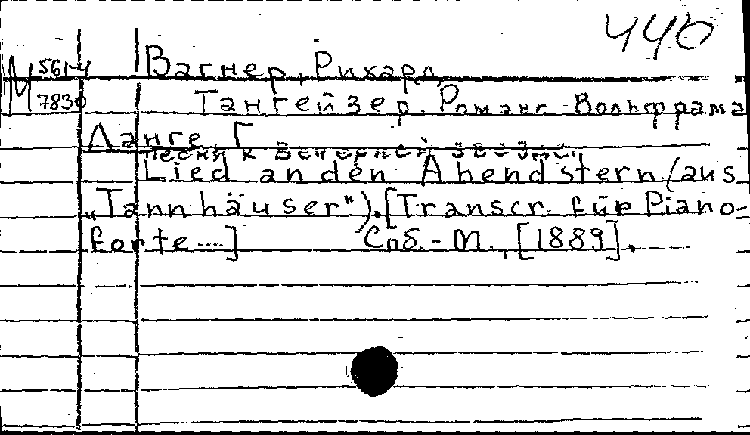 440
М 561-4 Вагнер, Рихард
7830 Тангейзер. Романс Вольфрама
Ланге Г.
песня к вечерней звезде
Lied an den Abendstern (aus
„Tannhäuser"). [Transcr. für Piano-
forte....] Спб.-М., [1889].